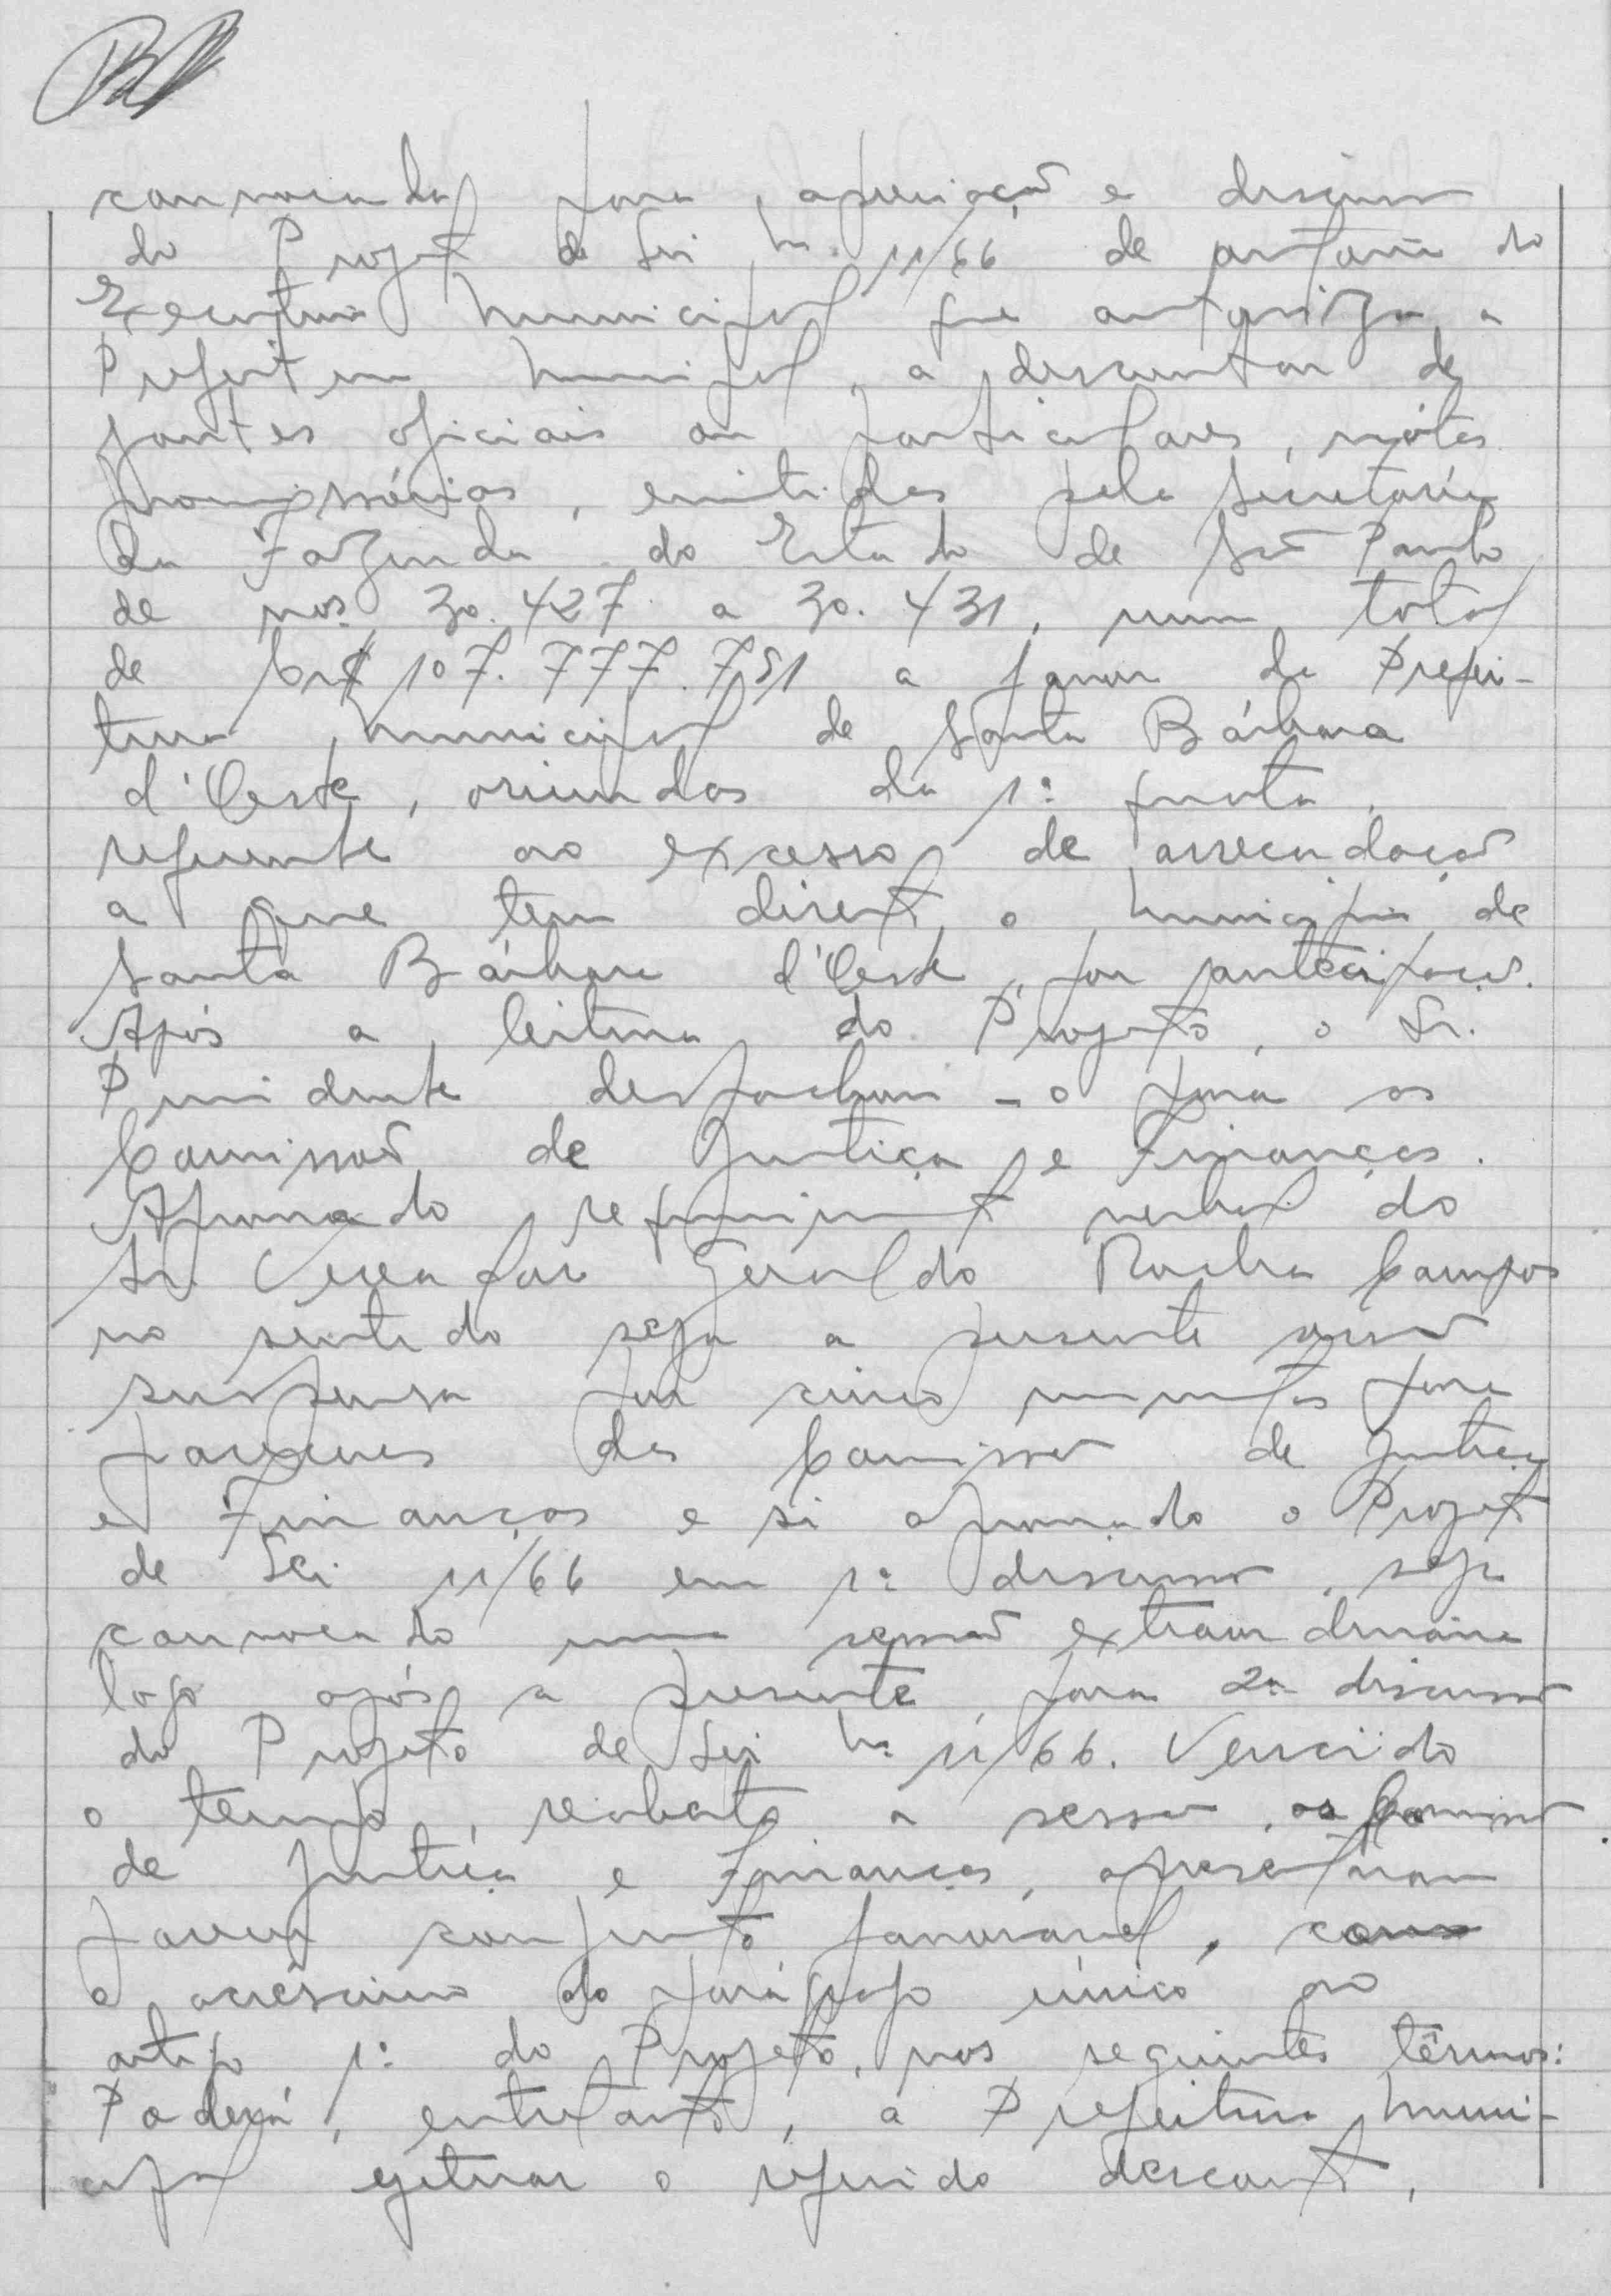 convocada para apreciação e discussão
do Projeto de Lei nº 11/66 de autoria do
Executivo Municipal que autoriza a
Prefeitura Municipal, a descontar de
fontes oficiais ou particulares, nótas
promissórias, emitidas pela Secretaria
da Fazenda do Estado de São Paulo
de nos. 30.427 a 30.431, num total
de Cr$ 107.777.751 a favor da Prefei-
tura Municipal de Santa Bárbara
d'Oeste, oriundas da 1ª quota,
referente ao excesso de arrecadação
a que tem direito o município de
Santa Bárbara d'Oeste, por antecipação.
Após a leitura do Projeto, o Sr.
Presidente despachou-o para as
Comissões de Justiça e Finanças.
Aprovado requerimento verbal do
Sr. Vereador Geraldo Rocha Campos
no sentido seja a presente sessão
suspensa por cinco minutos para
pareceres das Comissões de Justiça
e Finanças e si aprovado o Projeto
de Lei 11/66 em 1ª discussão, seja
convocado uma sessão extraordinária
logo após a presente, para 2ª discussão
do Projeto de Lei nº 11/66. Vencido
o tempo, reaberta a sessão, as Comissões
de Justiça e Finanças, apresentaram
parecer conjunto favorável, com
o acréscimo do parágrafo único ao
artigo 1º do Projeto, nos seguintes têrmos:
Poderá, entretanto, a Prefeitura Muni-
cipal efetuar o referido desconto,